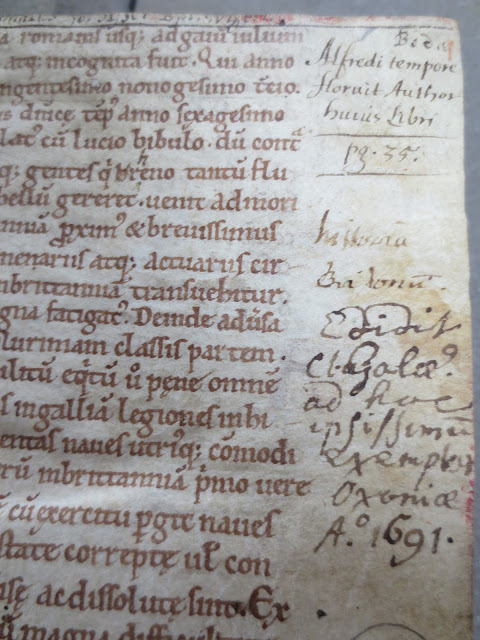 a romanis usq; ad gaiū iuliū
atq; incognita fuit. Qui anno
ngentesimo nonogesimo t̄cio.
anno sexagesimo
lat᷒ cū lucio bibulo. dū contᵃ
q; gentes q̄ tantū flu
bellū gereret᷒. uenit ad mori
proxim᷒ & breuissimus
nerariis atq; actuariis cir
inbrittanniā transuehitur.
gna fatigat᷒. Deinde adūsa
plurimam classis partem.
alitū eq̄tū ū pęne omnē
s ingalliā legiones in hi
entas naues utriq; cōmodi
rū inbrittanniā pⁱmo uere
ē cū exercitu ꝑgit naues
state correptę ul̄ con
isę ac dissolutę sint. Ex
ū magna
Beda
Alfredi tempore
floruit Author
huius Libri
pg. 35.
historia
Britonū.
Edidit
Cl. Galæ᷒.
ad hoc
ipsissimū
exemplar
Oxoniæ
A.º 1691.